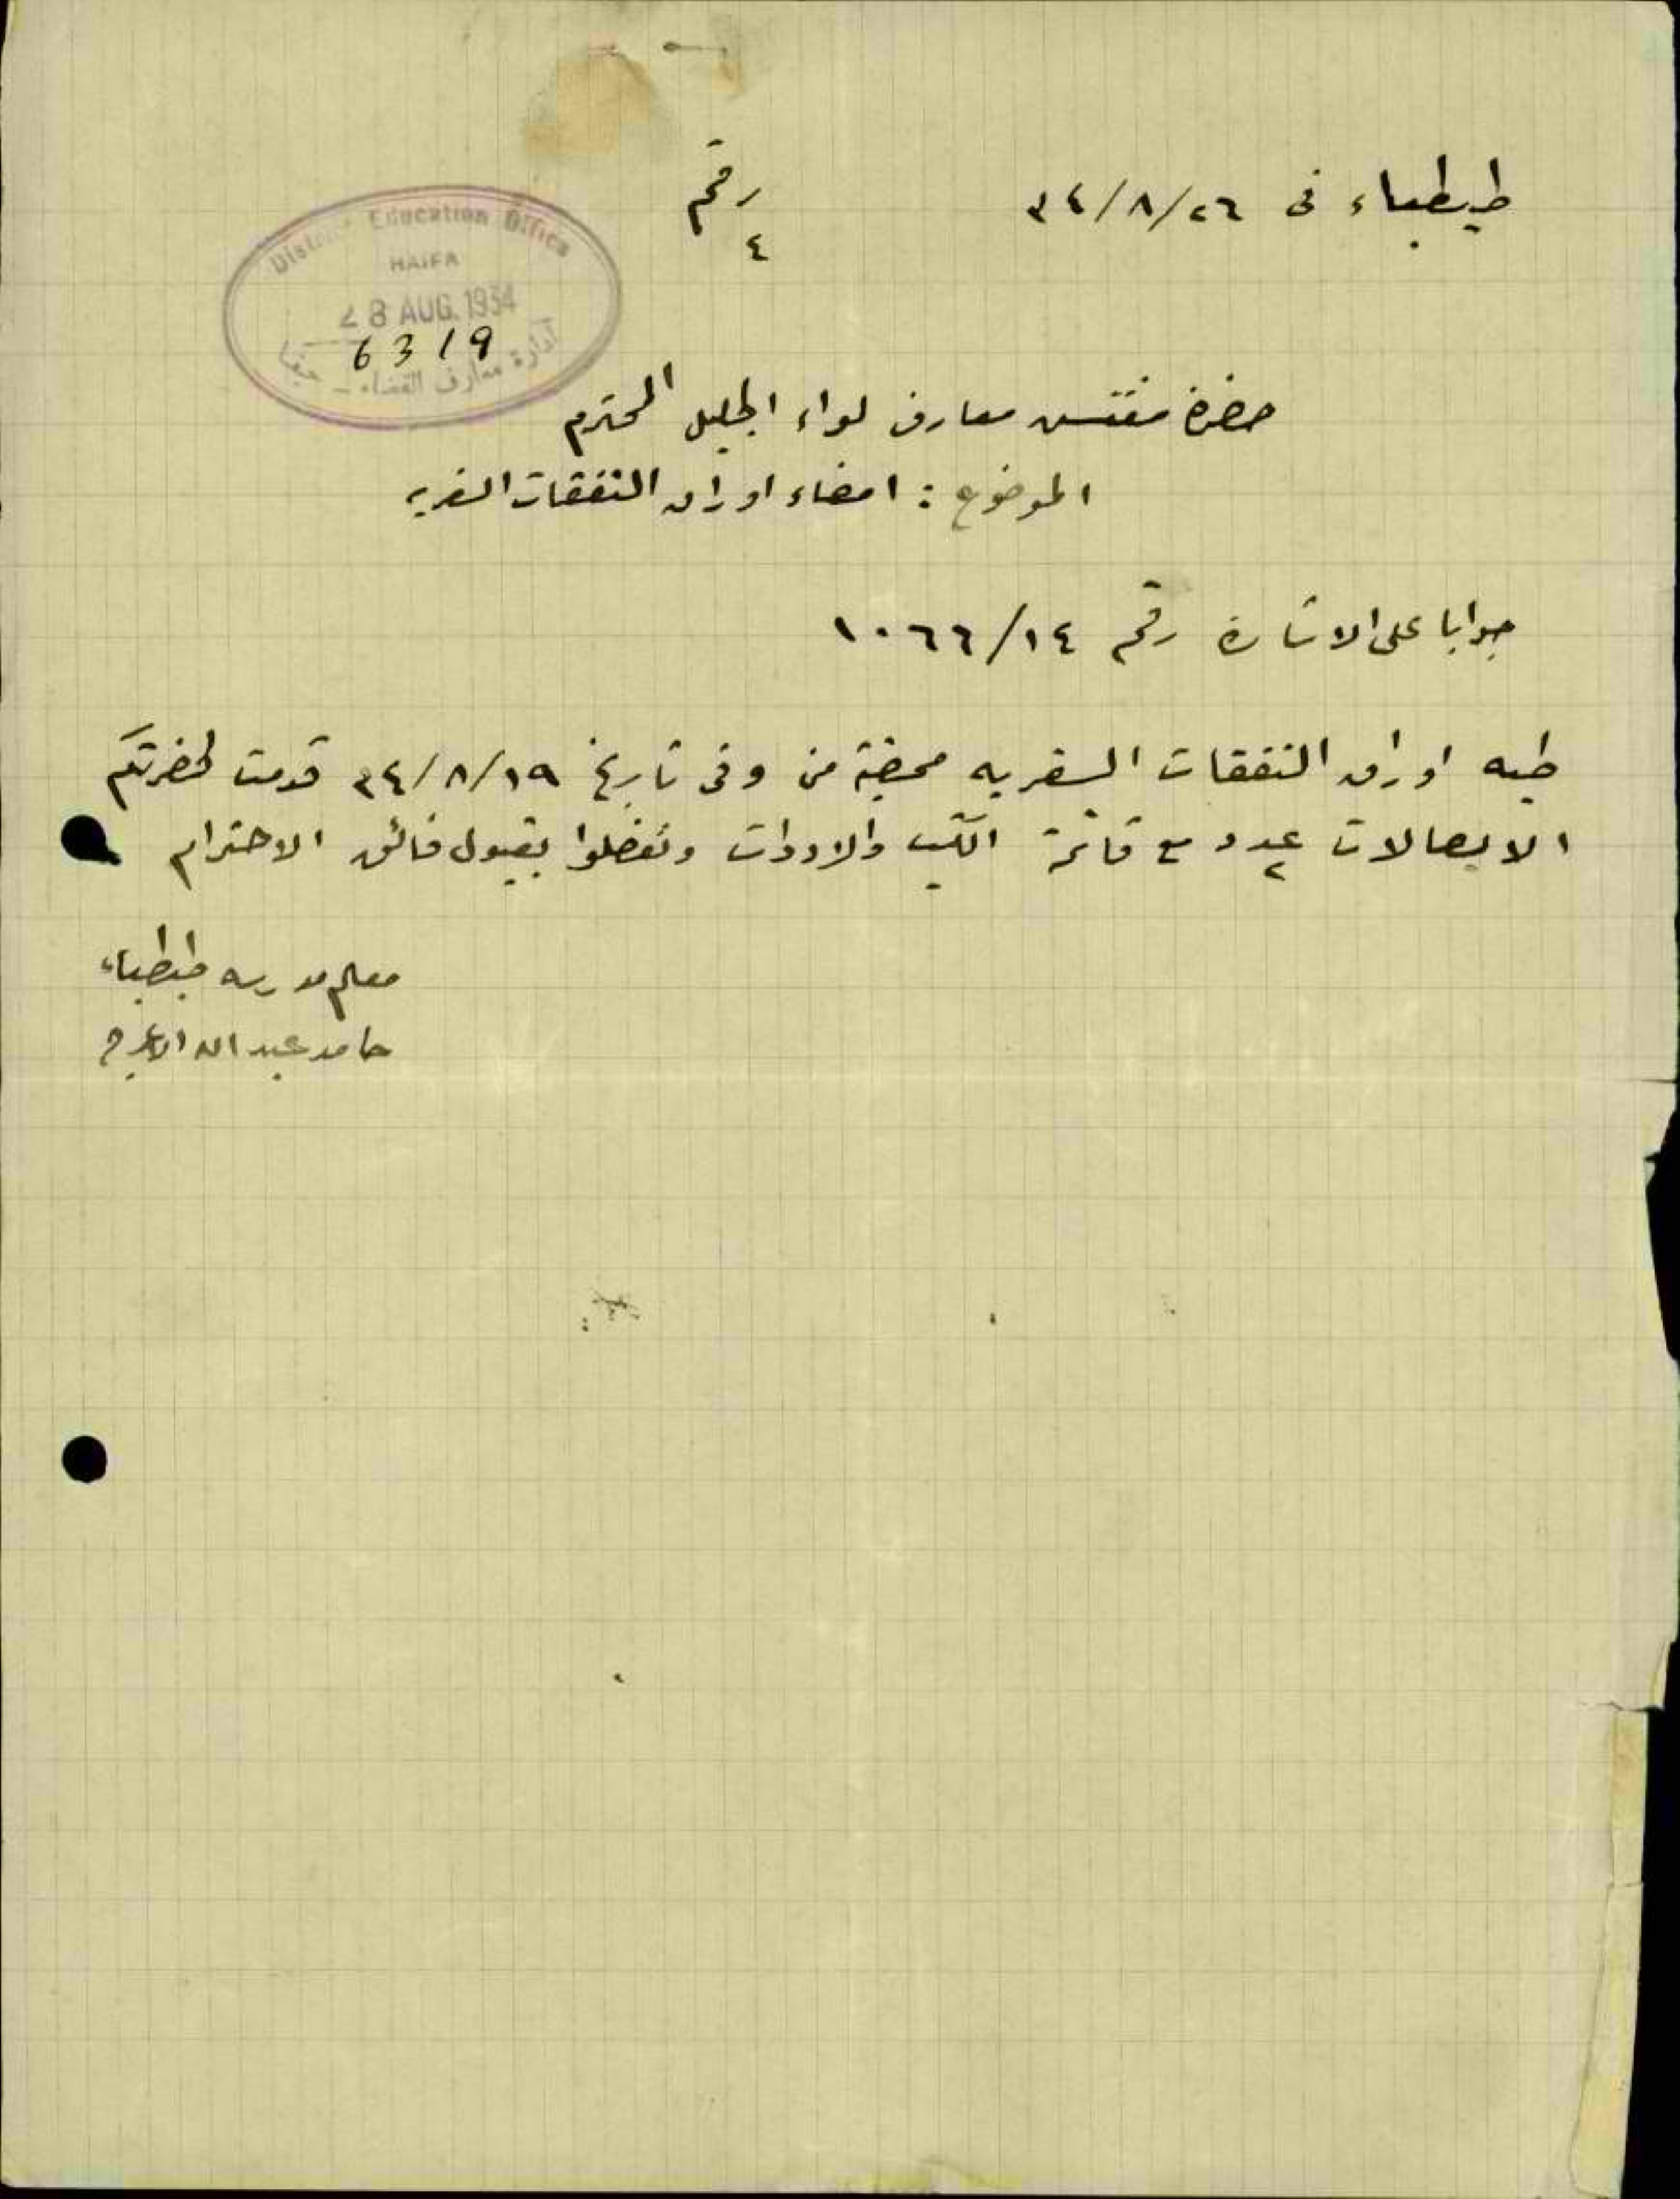 طيطباء في ٢٦/٨/٣٤
رقم
٤
District Education Office
HAIFA
28 AUG. 1934
6319
ادارة معارف القضاء - حيفا
حضرة مفتش معارف لواء الجليل المحترم
الموضوع : امضاء اوراق النفقات السفريه
جوابا على الاشارة رقم ١٤/١٠٦٦
طيه اوراق النفقات السفريه ممضية مني وفي تاريخ ١٩/٨/٣٤ قدمت لحضرتكم
الايصالات عدد ٢ مع قائمة الكتب والادوات وتفضلوا بقبول فائق الاحترام
معلم مدرسه طيطباء
حامد عبد الله الاعرج